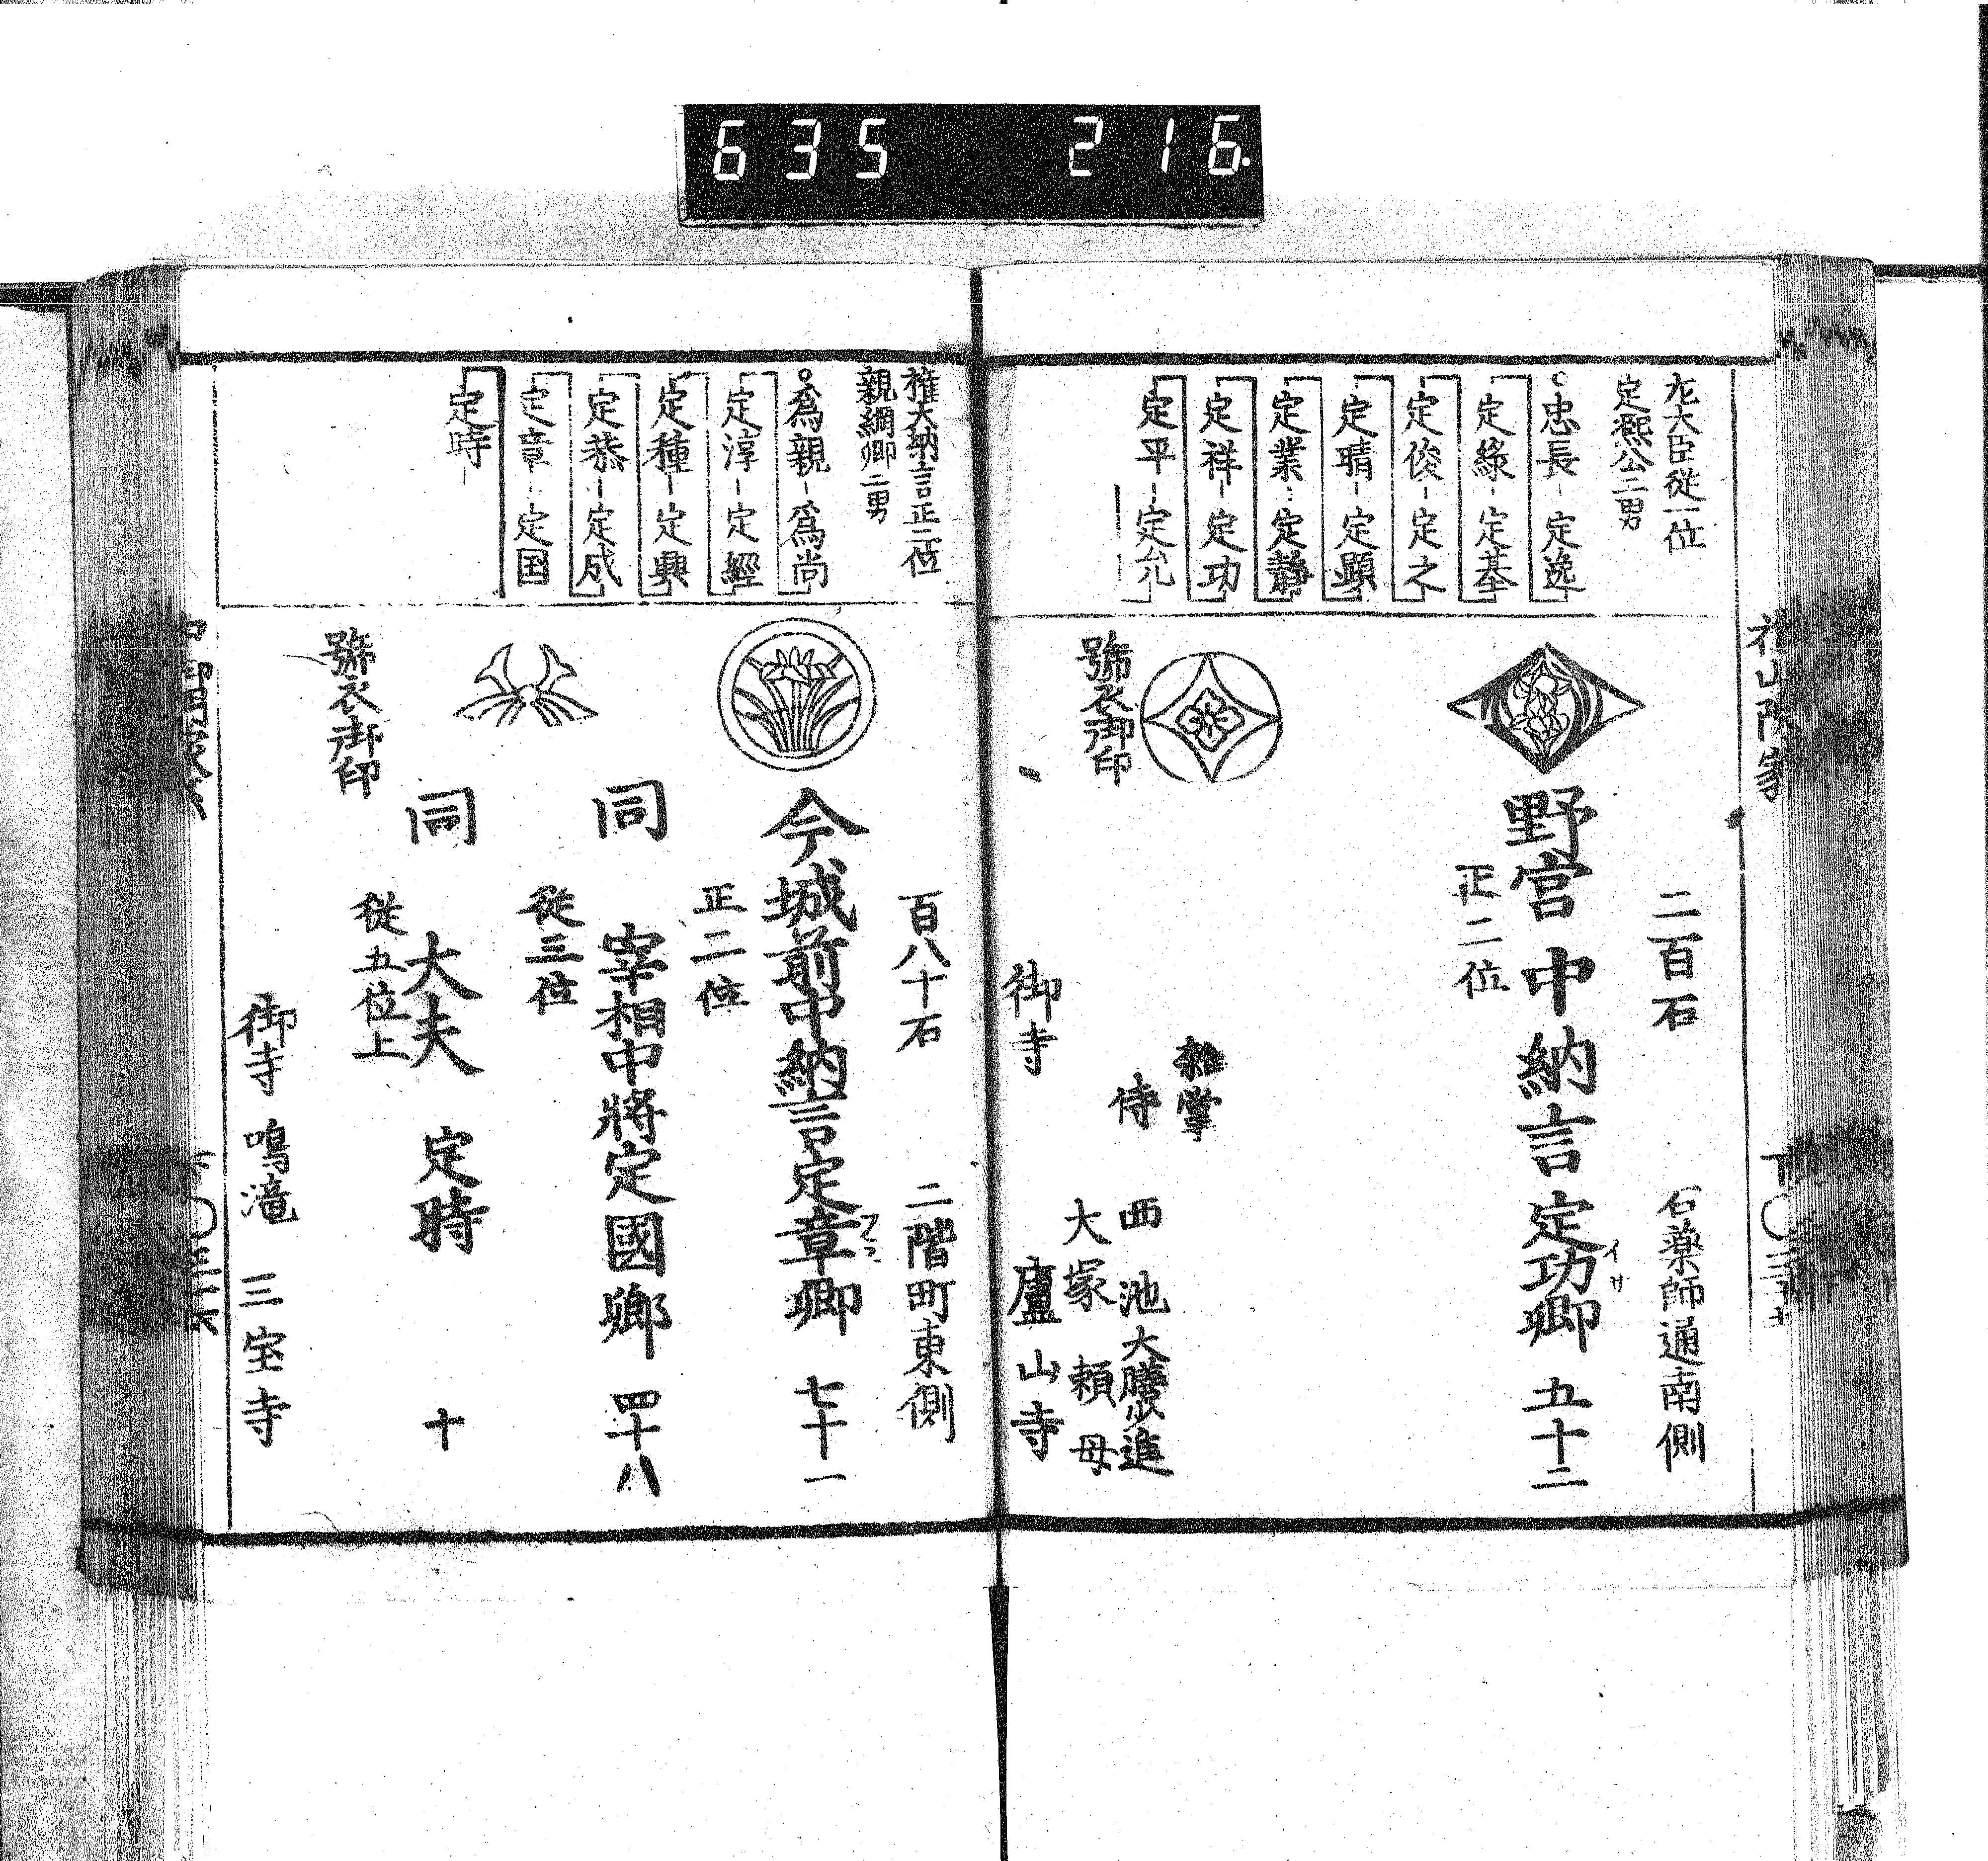 635 216.
左大臣従一位
定熙公二男
忠長-定逸
定緣-定基
定俊-定之
定晴-定顕
定業-定靜
定祥-定功
定平-定允
二百石 石薬師通南側
野宮中納言定功卿 五十二
イサ
正二位
雑掌
西池大膳少進
侍
大塚頼母
號衣御印
御寺 廬山寺
権大納言正二位
親綱卿二男
為親-為尚
定淳-定經
定種-定興
定恭-定成
定章-定国
定時-
百八十石 二階町東側
今城前中納言定章卿 七十一
正二位
同 宰相中將定國卿 四十八
従三位
同 大夫 定時 十
従五位上
號衣御印
御寺 鳴滝 三宝寺